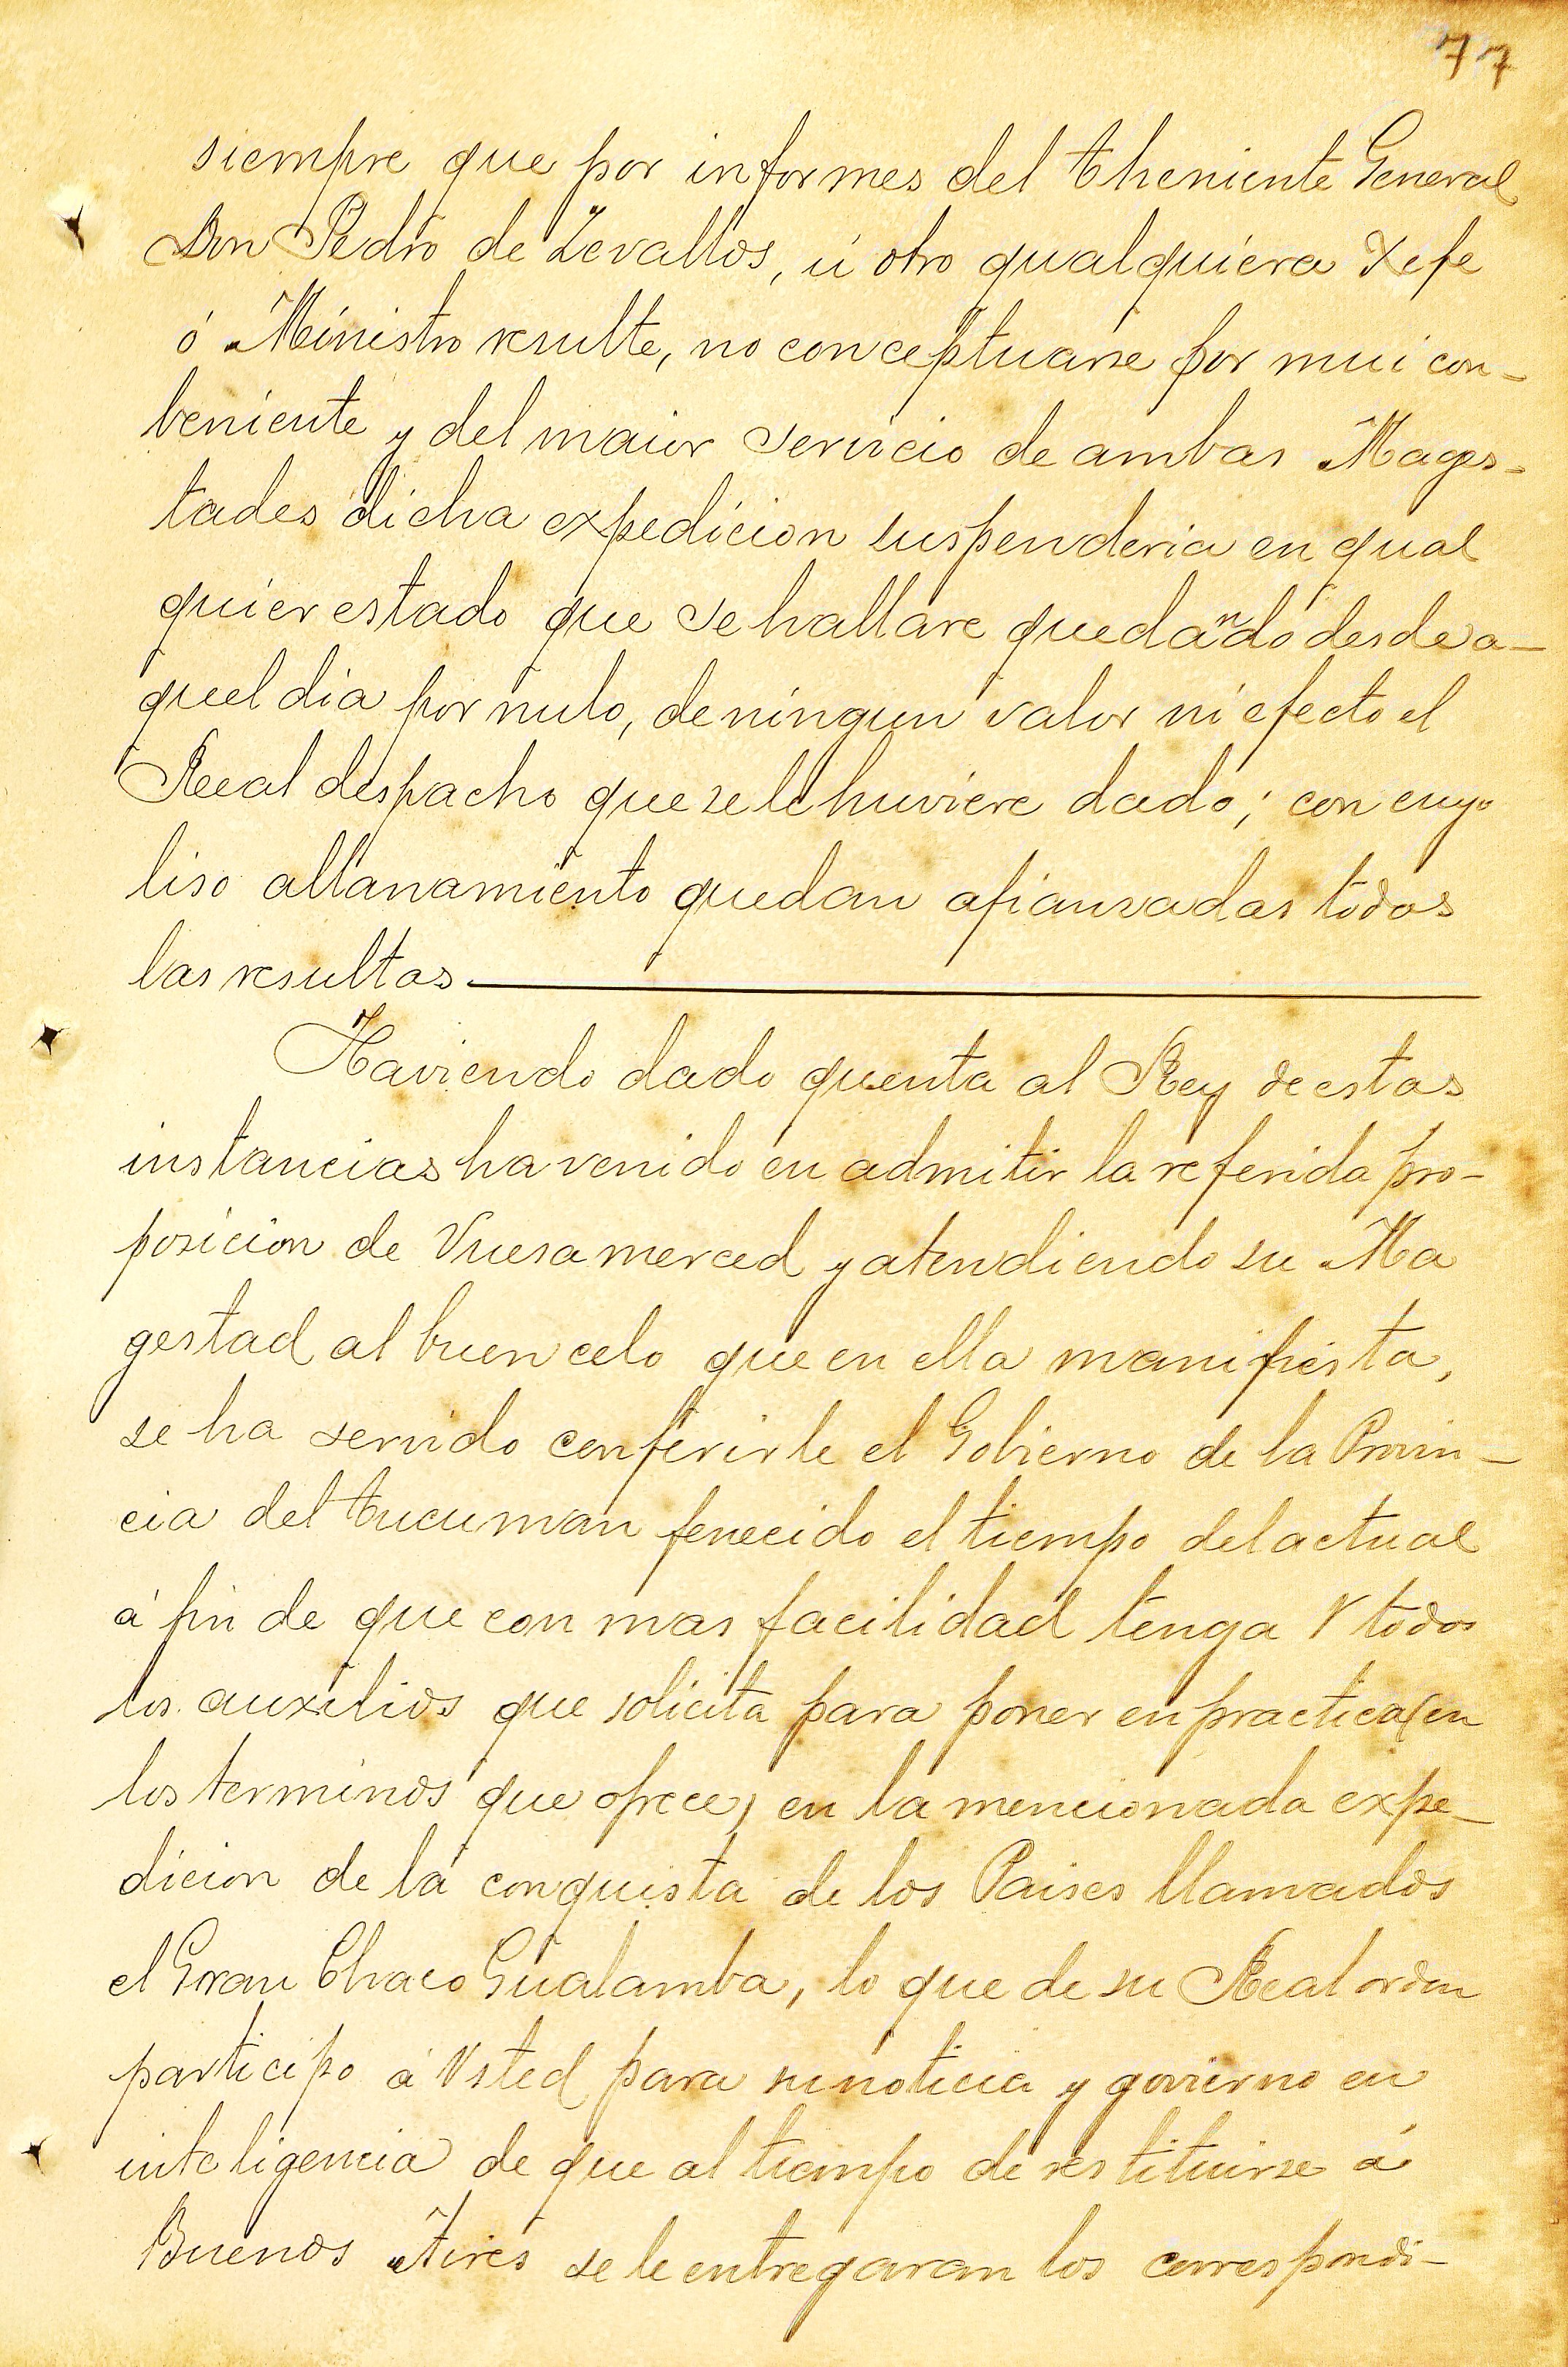 77
siempre que por informes del Theniente General
Don Pedro de Zevallos, ú otro qualquiera Xefe
ó Ministro resulte, no conceptuarse por mui con-
beniente y del maior servicio de ambas Mages-
tades dicha expedicion suspenderia en qual
quier estado que se hallare quedando desde a-
quel dia por nulo, de ningun valor ni efecto el
Real despacho que se le huviere dado; con cuyo
liso allanamiento quedan afianzadas todas
las resultas.
Haviendo dado quenta al Rey de estas
instancias ha venido en admitir la referida pro-
posicion de Vuesamerced y atendiendo su Ma
gestad al buen celo que en ella manifiesta,
se ha servido conferirle el Gobierno de la Provin-
cia del Tucuman fenecido el tiempo del actual
á fin de que con mas facilidad tenga V todos
los auxilios que solicita para poner en practica (en
los terminos que ofrece) en la mencionada expe-
dicion de la conquista de los Paises llamados
el Gran Chaco Gualamba, lo que de su Real orden
participo á Usted para su noticia y govierno en
inteligencia de que al tiempo de restituirse á
Buenos Aires se le entregaran los correspondi-